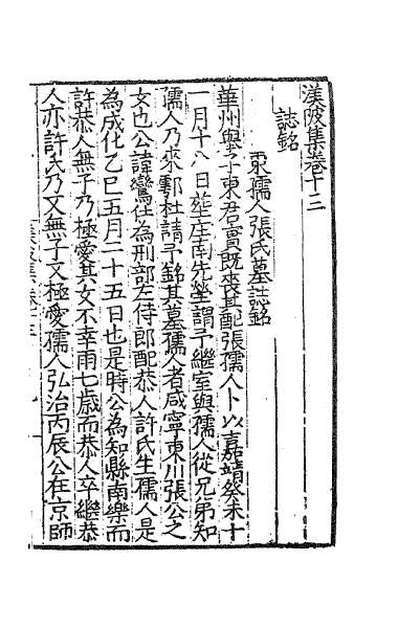 渼陂集卷十三
誌銘
東孺人張氏墓誌銘
華州舉子東君實既喪其配張孺人卜以嘉靖癸未十
一月十八日塟庄南先塋謂予繼室與孺人從兄弟知
孺人乃來鄠杜請予銘其墓孺人者咸寧東川張公之
女也公諱鸞仕為刑部左侍郎配恭人許氏生孺人是
為成化乙巳五月二十五日也是時公為知縣南樂而
許恭人無子乃極愛其女不幸兩七歲而恭人卒繼恭
人亦許氏乃又無子又極愛孺人弘治丙辰公在京師